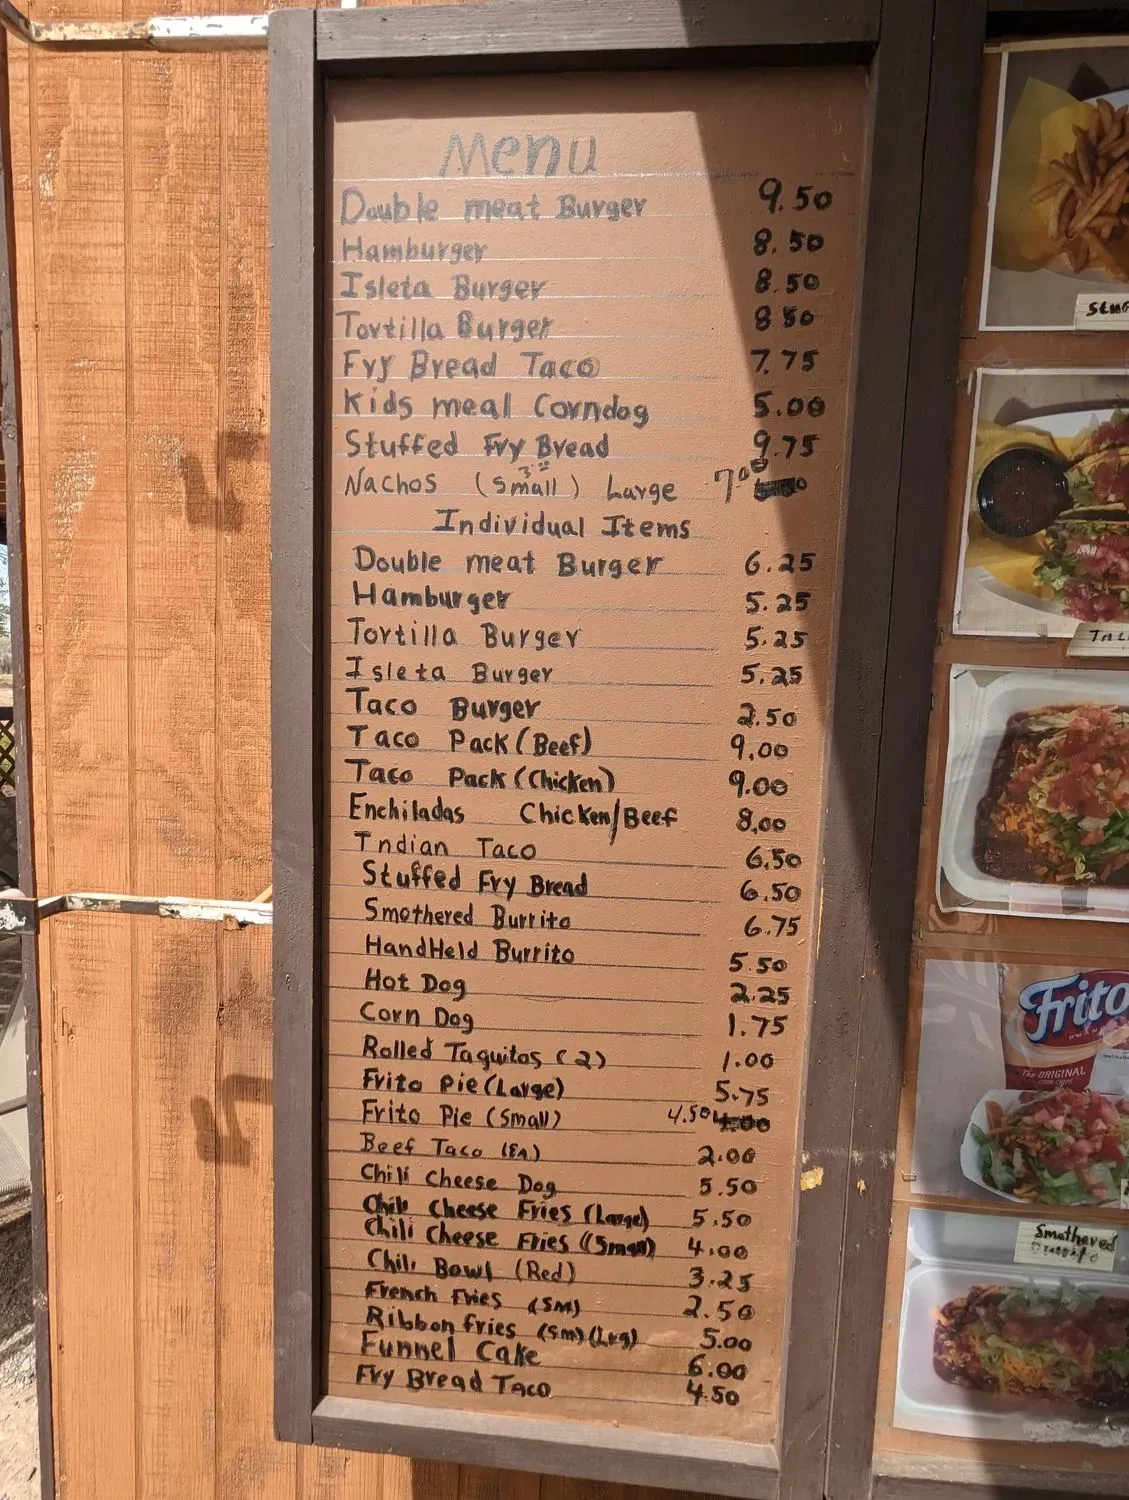 Menu
Double meat Burger 9.50
Hamburger 8.50
Isleta Burger 8.50
Tortilla Burger 8.50
Fry Bread Taco 7.75
Kids meal Corndog 5.00
Stuffed Fry Bread 9.75
Nachos (Small) 3.00 Large 7.00
Individual Items
Double meat Burger 6.25
Hamburger 5.25
Tortilla Burger 5.25
Isleta Burger 5.25
Taco Burger 2.50
Taco Pack (Beef) 9.00
Taco Pack (Chicken) 9.00
Enchiladas Chicken/Beef 8.00
Indian Taco 6.50
Stuffed Fry Bread 6.50
Smothered Burrito 6.75
HandHeld Burrito 5.50
Hot Dog 2.25
Corn Dog 1.75
Rolled Taquitos (2) 1.00
Frito Pie (Large) 5.75
Frito Pie (Small) 4.50 4.00
Beef Taco (EA) 2.00
Chili Cheese Dog 5.50
Chili Cheese Fries (Large) 5.50
Chili Cheese Fries (Small) 4.00
Chili Bowl (Red) 3.25
French Fries (Sm) 2.50
Ribbon fries (Sm) (Lrg) 5.00
Funnel Cake 6.00
Fry Bread Taco 4.50
Frito
The ORIGINAL
CORN CHIPS
Smothered